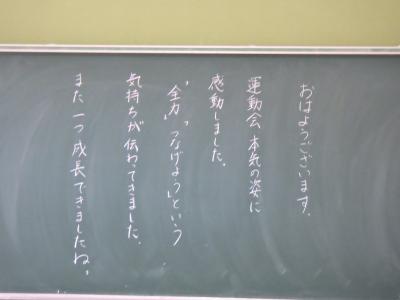 おはようございます。
運動会 本気の姿に
感動しました。
"全力""つなげよう"という
気持ちが伝わってきました。
また一つ成長できましたね。